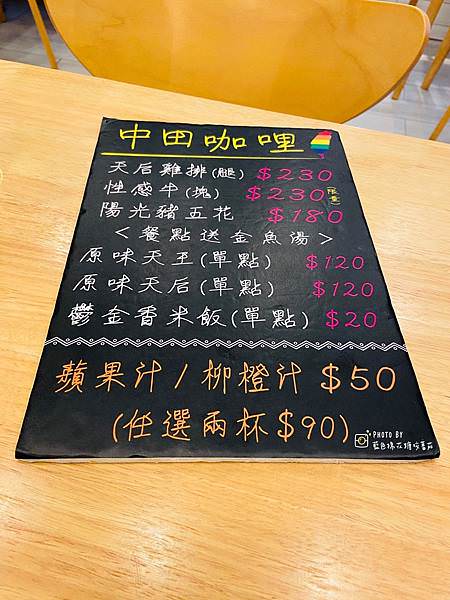 中田咖哩
天后雞排(腿) $230
性感牛(塊) $230 限量
陽光豬五花 $180
<餐點送金魚湯>
原味天王(單點) $120
原味天后(單點) $120
鬱金香米飯(單點) $20
蘋果汁/柳橙汁 $50
(任選兩杯$90)
PHOTO BY
藍色棉花糖佐番茄